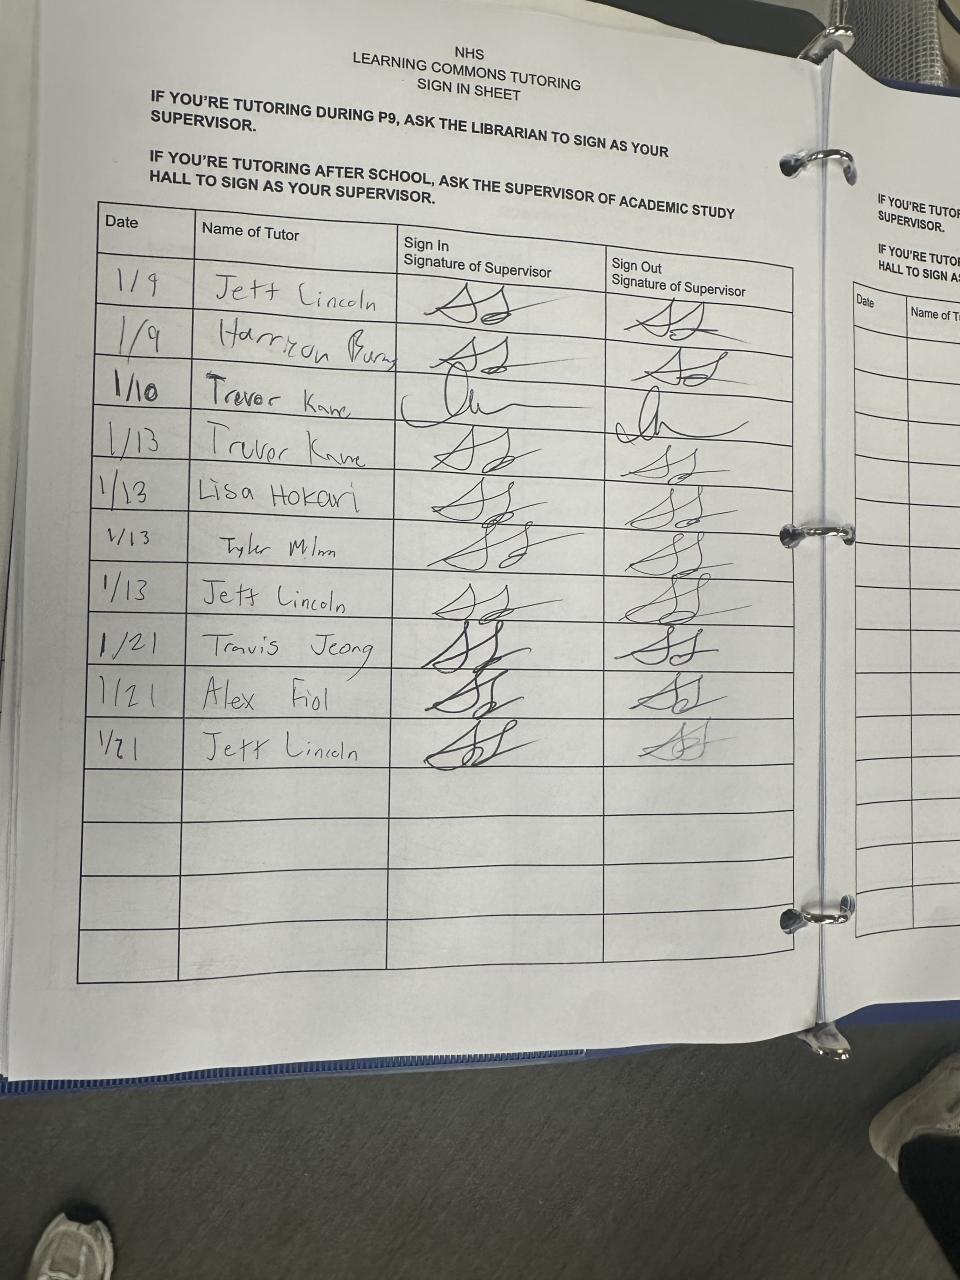 NHS
LEARNING COMMONS TUTORING
SIGN IN SHEET
IF YOU'RE TUTORING DURING P9, ASK THE LIBRARIAN TO SIGN AS YOUR
SUPERVISOR.
IF YOU'RE TUTORING AFTER SCHOOL, ASK THE SUPERVISOR OF ACADEMIC STUDY
HALL TO SIGN AS YOUR SUPERVISOR.
Date Name of Tutor Sign In Signature of Supervisor Sign Out Signature of Supervisor
1/9 Jeff Lincoln
1/9 Harrison
1/10 Trevor Kane
1/13 Trevor Kane
1/13 Lisa Hokari
1/13 Tyler
1/13 Jeff Lincoln
1/21 Travis Jeong
1/21 Alex Fiol
1/21 Jeff Lincoln
IF YOU'RE TUTOR
SUPERVISOR.
IF YOU'RE TUTO
HALL TO SIGN A
Date Name of T